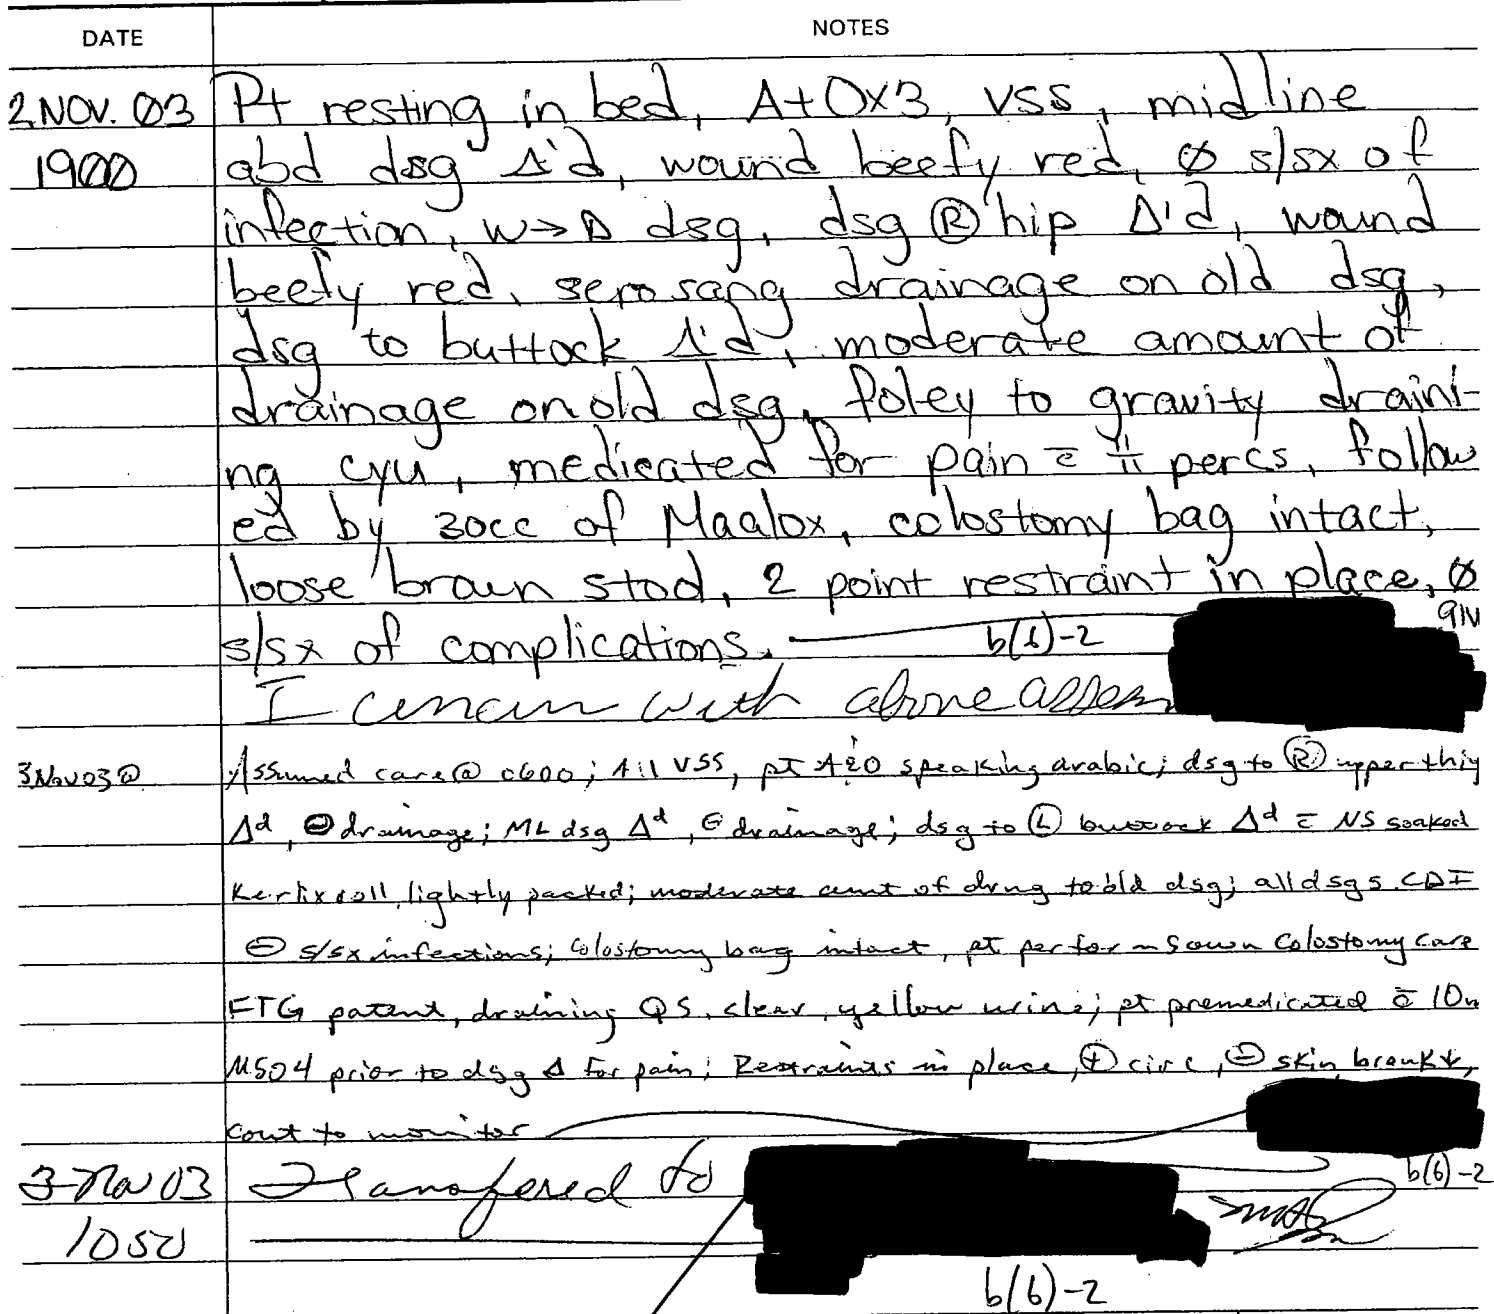 DATE NOTES
2 NOV. Ø3 Pt resting in bed, A+Ox3, VSS, midline
19ØØ abd dsg Δ'd, wound beefy red, Ø s/sx of
infection, W→D dsg, dsg Ⓡ hip Δ'd, wound
beefy red, serosang drainage on old dsg,
dsg to buttock Δ'd, moderate amount of
drainage on old dsg, foley to gravity draini-
ng cyu, medicated for pain c̄ ii percs, follow
ed by 30cc of Maalox, colostomy bag intact,
loose brown stool, 2 point restraint in place, Ø
s/sx of complications. b(6)-2 91W
I concur with above assess
3Nov03@ Assumed care @ 0600; All VSS, pt A&O speaking arabic; dsg to Ⓡ upper thig
Δd, ⊖ drainage; ML dsg Δd, ⊖ drainage; dsg to Ⓛ buttock Δd c̄ NS soaked
Kerlix roll lightly packed; moderate amt of drng to old dsg; all dsgs CDI
⊖ s/sx infections; Colostomy bag intact, pt performs own Colostomy care
FTG patent, draining QS, clear, yellow urine; pt premedicated c̄ 10m
MSO4 prior to dsg Δ for pain; Restraints in place, ⊕ circ, ⊖ skin break↓,
cont to monitor
3 Nov 03 Transfered to b(6)-2
1050
b(6)-2